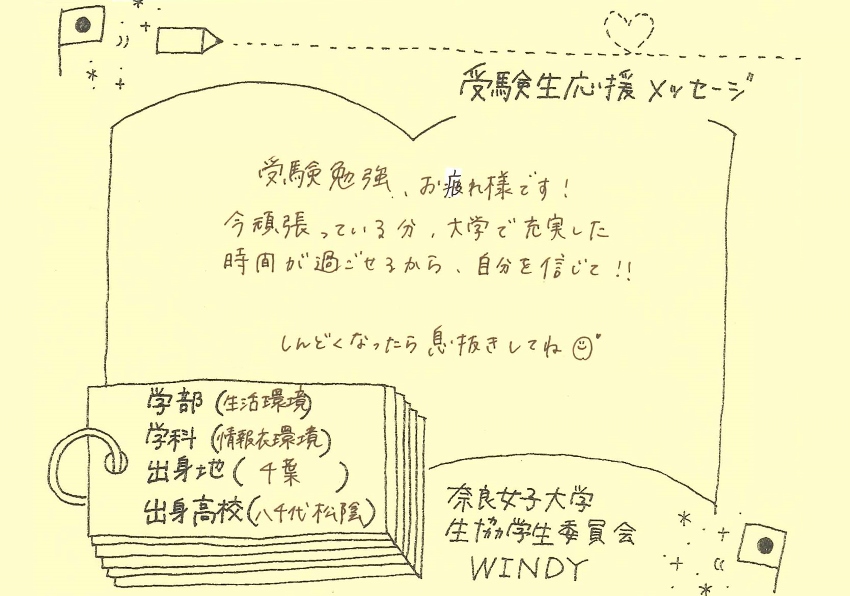 受験生応援メッセージ
受験勉強、お疲れ様です！
今頑張っている分、大学で充実した
時間が過ごせるから、自分を信じて!!
しんどくなったら息抜きしてね
学部(生活環境)
学科(情報衣環境)
出身地(千葉)
出身高校(八千代松陰)
奈良女子大学
生協学生委員会
WINDY